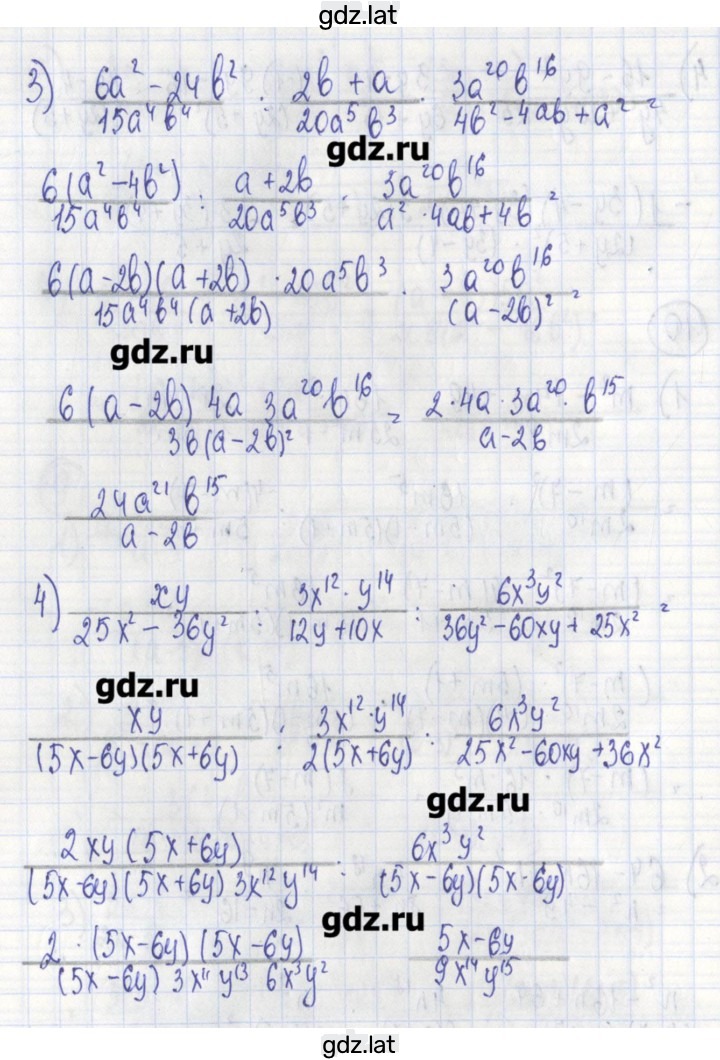 gdz.lat
3) (6a² - 24b²)/(15a⁴b⁴) : (2b + a)/(20a⁵b³) · (3a²⁰b¹⁶)/(4b² - 4ab + a²) =
gdz.ru
(6(a² - 4b²))/(15a⁴b⁴) : (a + 2b)/(20a⁵b³) · (3a²⁰b¹⁶)/(a² · 4ab + 4b) =
(6(a - 2b)(a + 2b) · 20a⁵b³)/(15a⁴b⁴(a + 2b)) · (3a²⁰b¹⁶)/((a - 2b)²) =
gdz.ru
(6(a - 2b) 4a 3a²⁰ · b¹⁶)/(3b(a - 2b)²) = (2 · 4a · 3a²⁰ · b¹⁵)/(a - 2b)
(24a²¹b¹⁵)/(a - 2b)
4) (xy)/(25x² - 36y²) : (3x¹² · y¹⁴)/(12y + 10x) : (6x³y²)/(36y² - 60xy + 25x²) =
gdz.ru
(xy)/((5x - 6y)(5x + 6y)) : (3x¹² · y¹⁴)/(2(5x + 6y)) : (6x³y²)/(25x² - 60xy + 36x²)
gdz.ru
(2xy(5x + 6y))/((5x - 6y)(5x + 6y) 3x¹²y¹⁴) : (6x³y²)/((5x - 6y)(5x - 6y))
gdz.ru
(2 · (5x - 6y)(5x - 6y))/((5x - 6y) 3x¹¹y¹³ 6x³y²) (5x - 6y)/(9x¹⁴y¹⁵)
gdz.lat